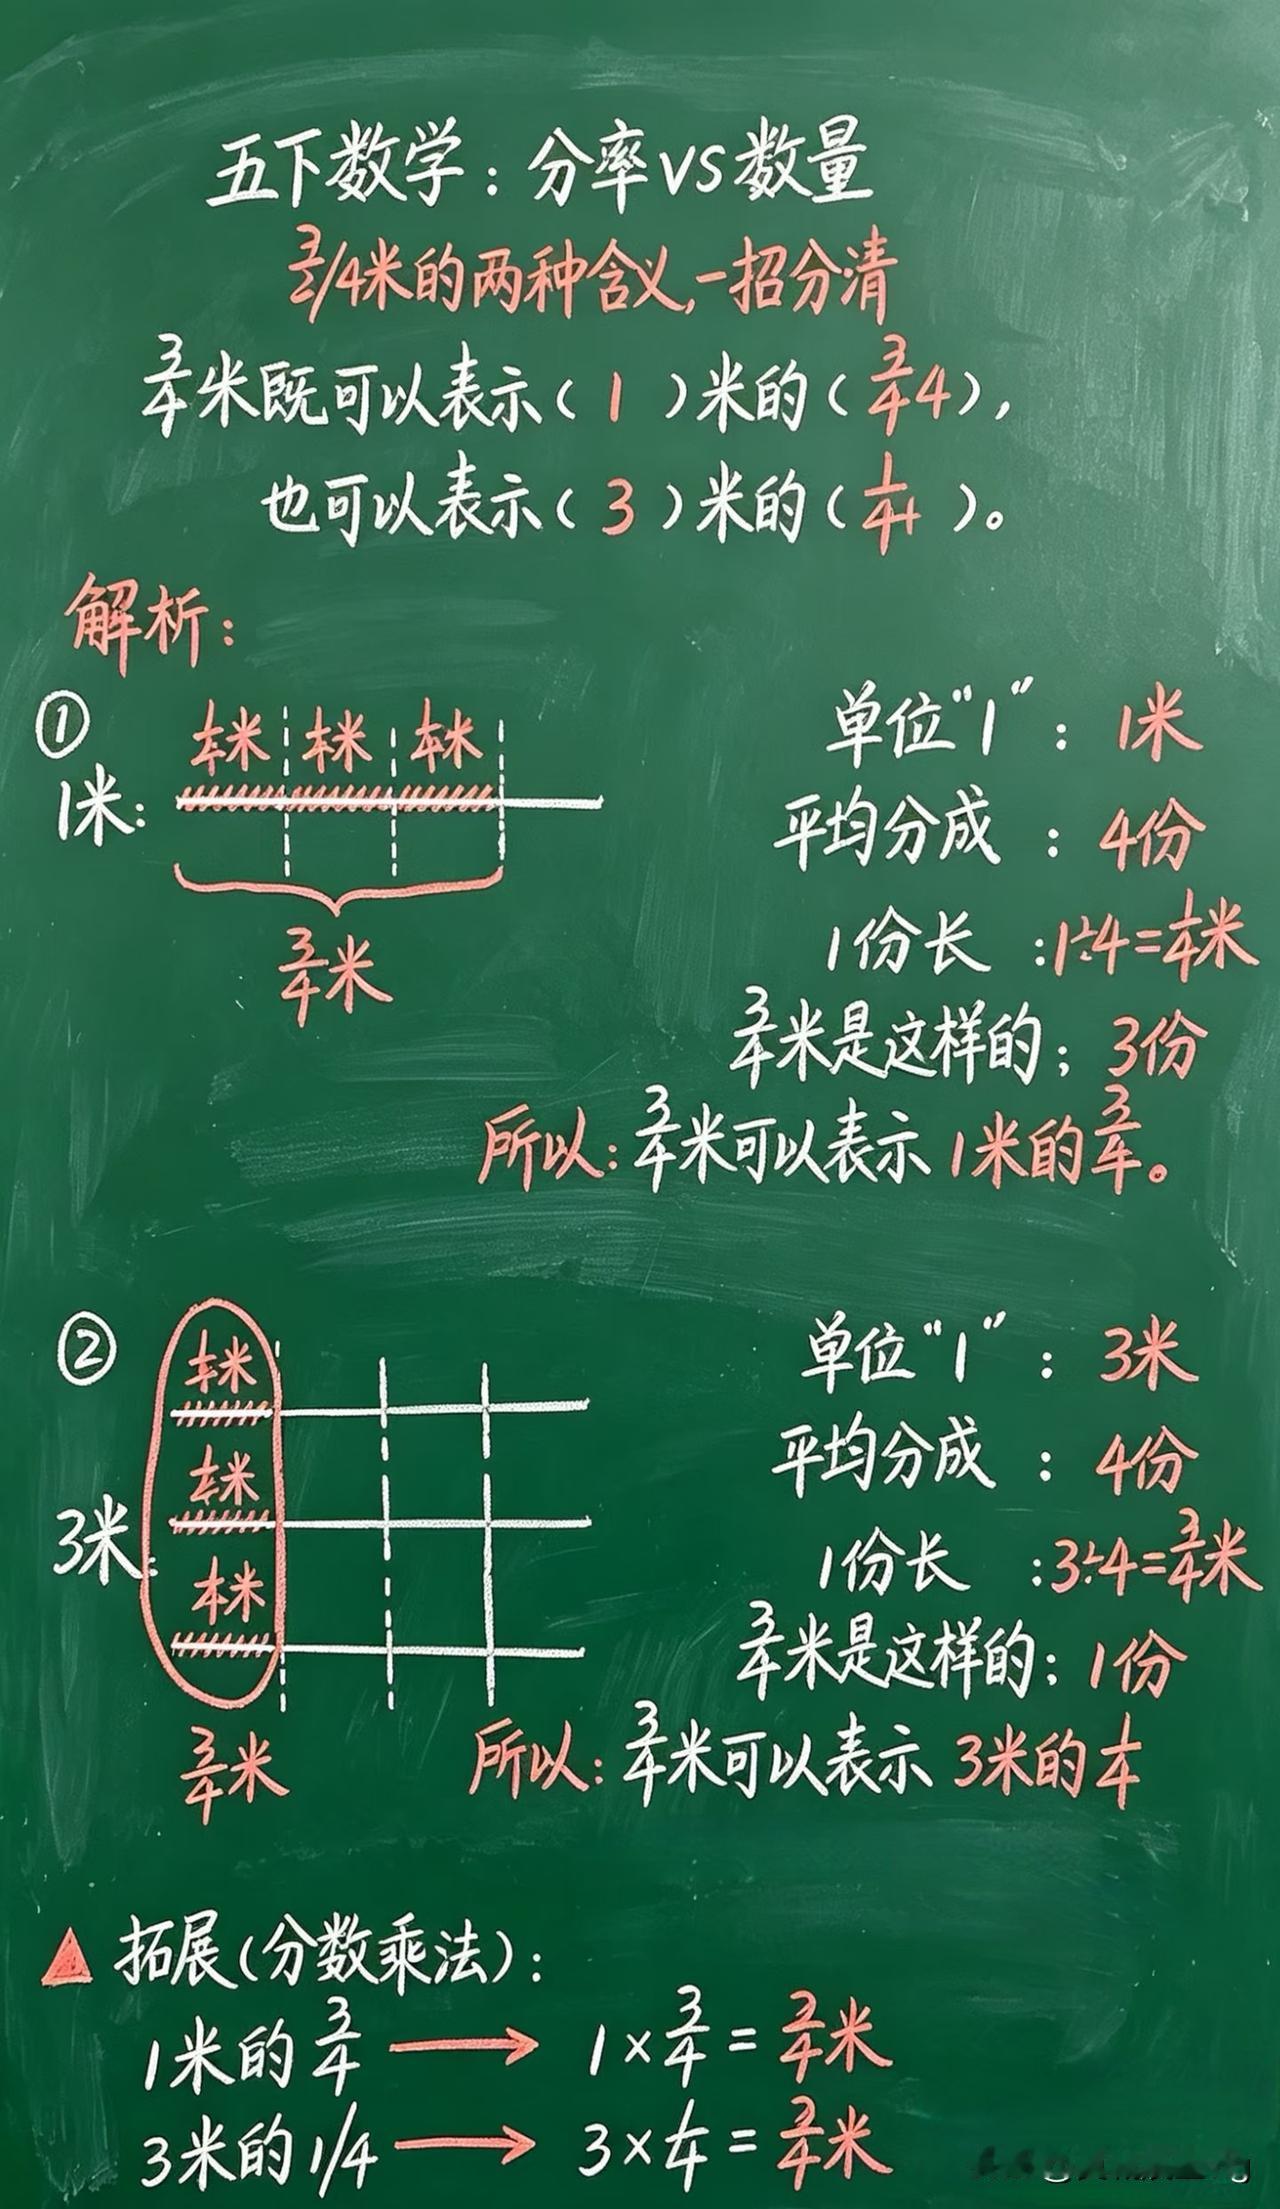 五下数学：分率VS数量
3/4米的两种含义,一招分清
3/4米既可以表示（ 1 ）米的（ 3/4 4），
也可以表示（ 3 ）米的（ 1/4 ）。
解析：
①
1/4米 1/4米 1/4米
1米：
3/4米
单位“1”：1米
平均分成：4份
1份长：1÷4=1/4米
3/4米是这样的；3份
所以：3/4米可以表示 1米的3/4。
②
1/4米
1/4米
3米：
1/4米
3/4米
单位“1”：3米
平均分成：4份
1份长：3÷4=3/4米
3/4米是这样的；1份
所以：3/4米可以表示 3米的1/4
▲ 拓展（分数乘法）：
1米的3/4 → 1×3/4=3/4米
3米的1/4 → 3×1/4=3/4米